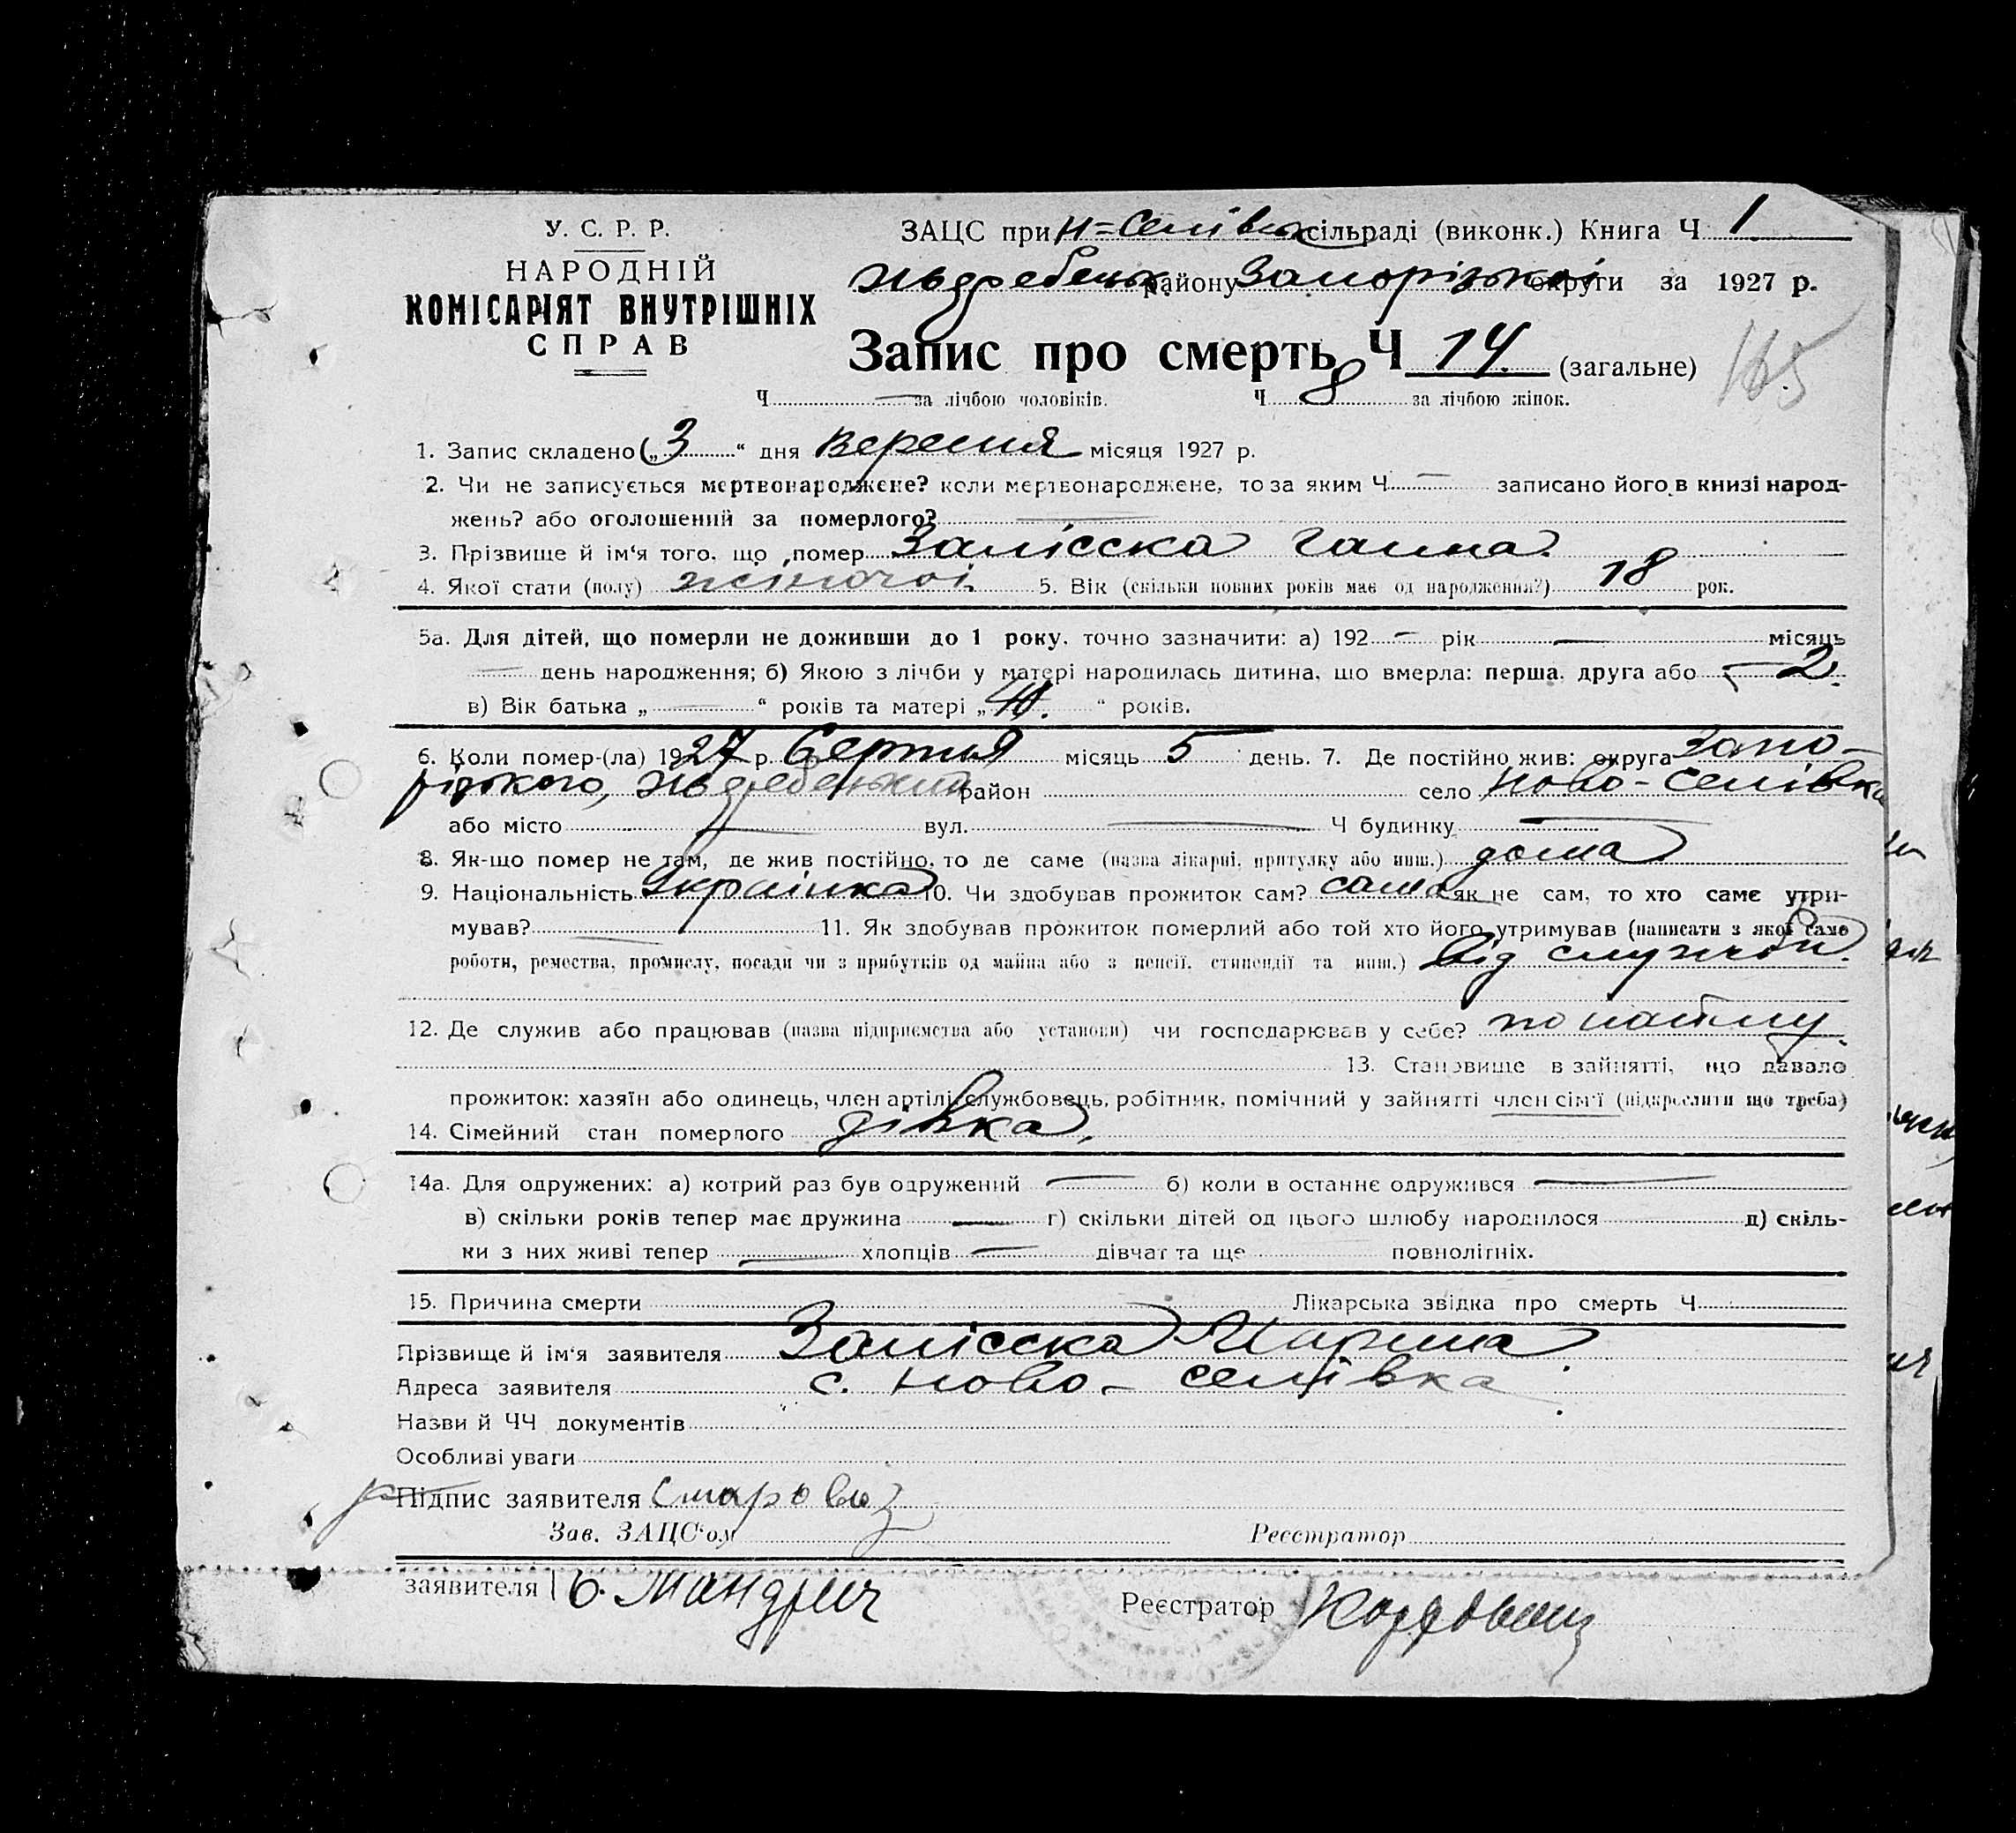 У. С. Р. Р.
НАРОДНІЙ
КОМІСАРІЯТ ВНУТРІШНІХ
СПРАВ
ЗАЦС при Н=Селівск сільраді (виконк.) Книга Ч 1
району Запорізької округи за 1927 р.
Запис про смерть Ч 14. (загальне)
165
Ч — за лічбою чоловіків. Ч 8 за лічбою жінок.
1. Запис складено „3“ дня вересня місяця 1927 р.
2. Чи не записується мертвонароджене? коли мертвонароджене, то за яким Ч — записано його в книзі народ-
жень? або оголошений за померлого? —
3. Прізвище й ім‘я того, що помер Залісска Ганна.
4. Якої стати (полу) жіночої. 5. Вік (скільки повних років має од народження?) 18 рок.
5а. Для дітей, що померли не доживши до 1 року, точно зазначити: а) 192 — рік — місяць
— день народження; б) Якою з лічби у матері народилась дитина, що вмерла: перша, друга або — 2.
в) Вік батька „ — “ років та матері „ 40. “ років.
6. Коли помер-(ла) 1927 р. Серпня місяць 5 день. 7. Де постійно жив: округа Запо-
різького, район село Ново-Селівка
або місто — вул. — Ч будинку —
8. Як-що помер не там, де жив постійно, то де саме (назва лікарні, притулку або инш.) дома
9. Національність Українка 10. Чи здобував прожиток сам? сама як не сам, то хто саме утри-
мував? — 11. Як здобував прожиток померлий або той хто його утримував (написати з якої саме
роботи, ремества, промислу, посади чи з прибутків од майна або з пенсії, стипендії та инш.) від служби.
12. Де служив або працював (назва підприємства або установи) чи господарював у себе? по найму.
13. Становище в зайнятті, що давало
прожиток: хазяїн або одинець, член артілі, службовець, робітник, помічний у зайнятті член сім‘ї (підкреслити що треба)
14. Сімейний стан померлого дівка,
14а. Для одружених: а) котрий раз був одружений — б) коли в останнє одружився —
в) скільки років тепер має дружина — г) скільки дітей од цього шлюбу народилося д) скіль-
ки з них живі тепер — хлопців — дівчат та ще повнолітніх.
15. Причина смерти Лікарська звідка про смерть Ч
Прізвище й ім‘я заявителя Залісска Марина
Адреса заявителя с. Ново-Селівка
Назви й ЧЧ документів
Особливі уваги
Підпис заявителя
Зав. ЗАЦС‘ом Реєстратор
заявителя Мандрич Реєстратор